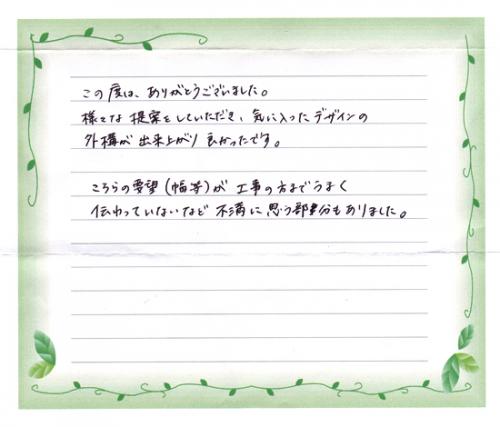 この度は、ありがとうございました。
様々な提案をしていただき、気に入ったデザインの
外構が出来上がり良かったです。
こちらの要望(幅等)が工事の方までうまく
伝わっていないなど不満に思う部分もありました。